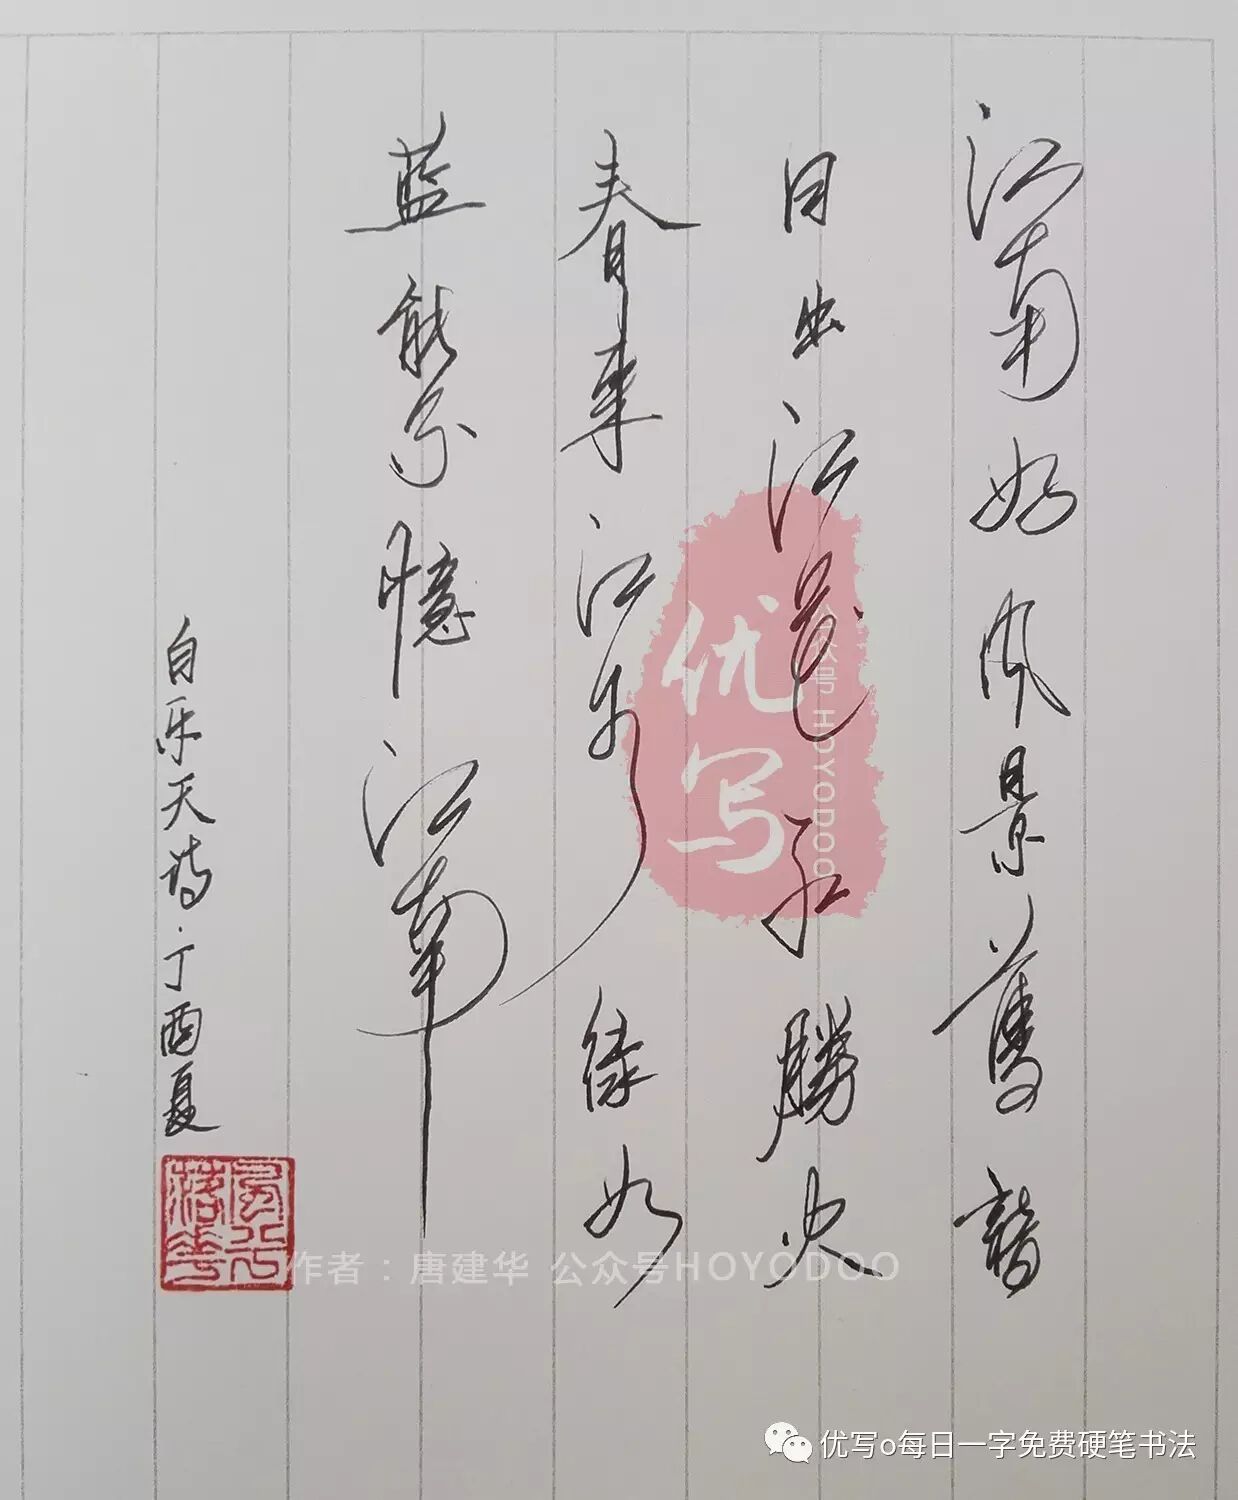 江南好风景舊諳
日出江花红勝火
春来江水绿如
蓝能不憶江南
白乐天诗·丁酉夏
优写
公众号 HOYODOO
作者：唐建华 公众号HOYODOO
优写o每日一字免费硬笔书法